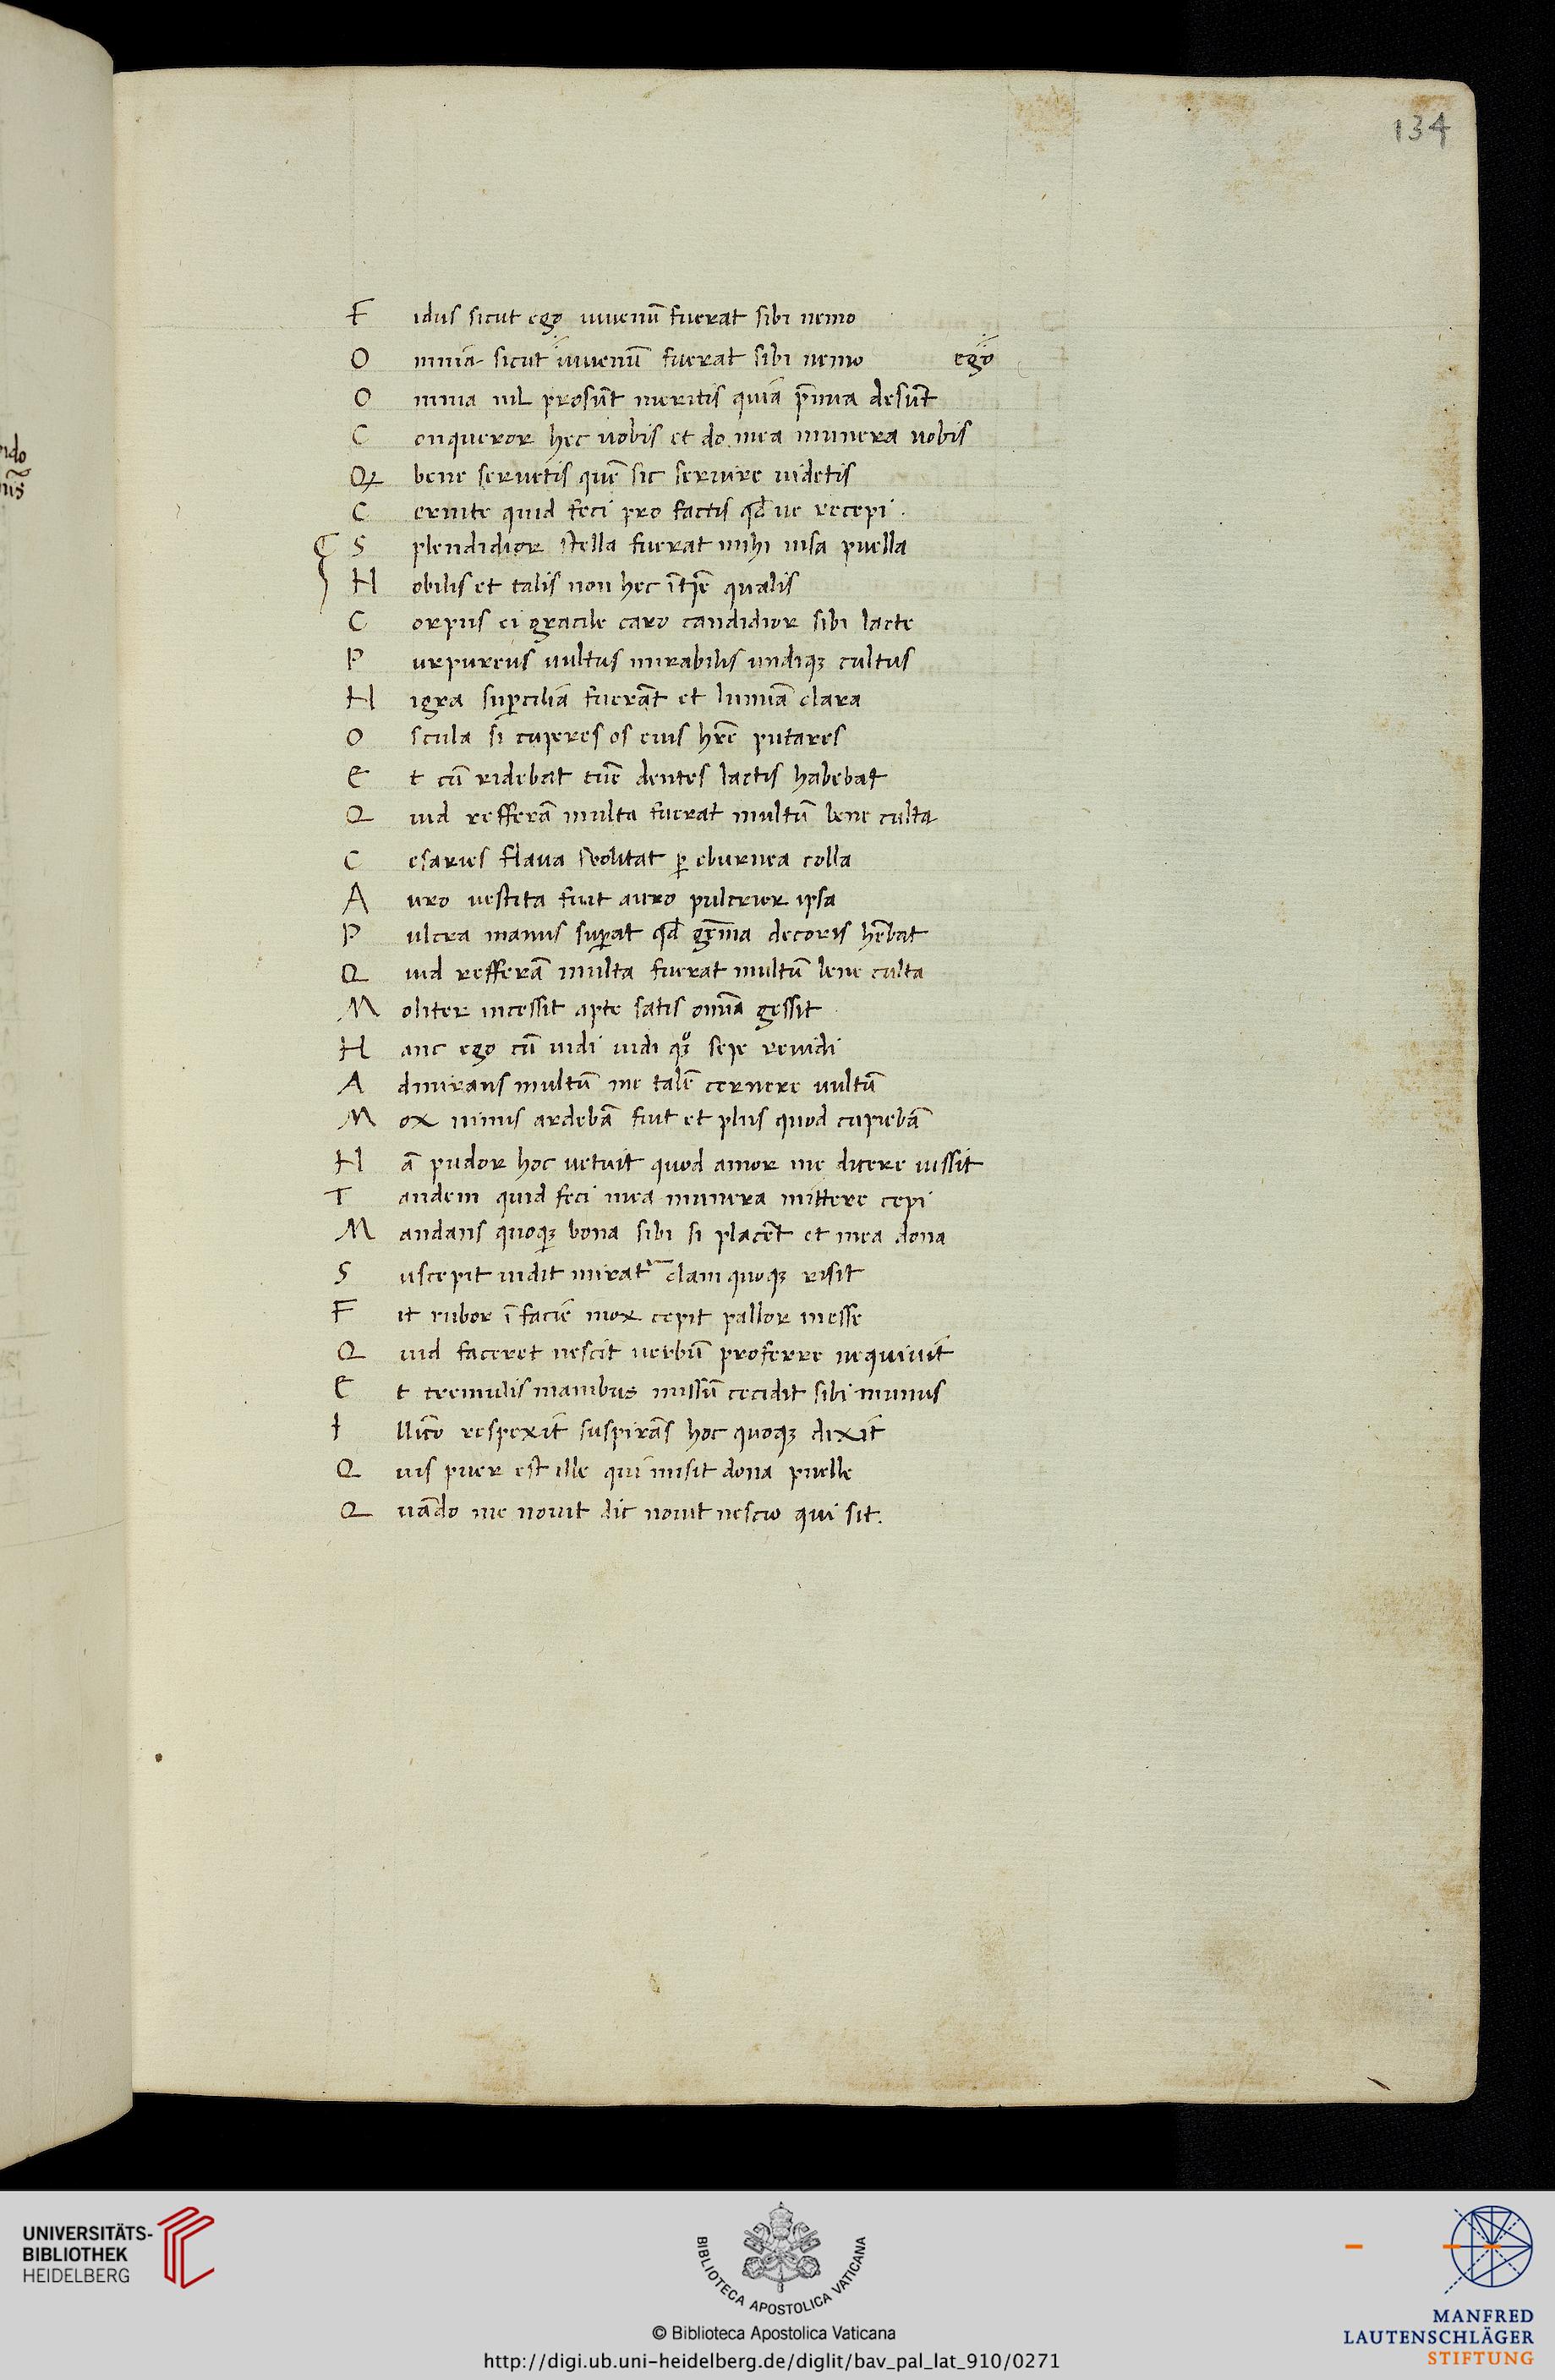 134
Fidus sicut ego iuuenū fuerat sibi nemo
Omnia sicut iuuenū fuerat sibi nemo ego
Omnia nil prosūt meritis quia p̄mia desūt
Conqueror hec uobis et do mea munera uobis
Qꝫ bene seruetis quē sic seruire uidetis
Cernite quid feci pro factis qd̄ ue recepi.
Splendidior stella fuerat mihi uisa puella
Nobilis et talis non hec īqē qualis
Corpus ei gracile caro candidior sibi lacte
Purpureus uultus mirabilis undiqꝫ cultus
Nigra suꝑcilia fuerāt et lumīa clara
Oscula si cuperes os eius hr̄e putares
Et cū ridebat tūc dentes lactis habebat
Quid refferā multa fuerat multū bene culta
Cesaries flaua uolitat ꝑ eburnea colla
Auro uestita fuit auro pulcrior ipsa
Pulcra manus suꝑat qd̄ gēma decoris hēbat
Quid refferā multa fuerat multū bene culta
Moliter incessit apte satis omīa gessit
Hanc ego cū uidi uidi qꝫ sepe reuidi
Admirans multū me talē cernere uultū
Mox nimis ardebā fuit et plus quod cupiebā
Nā pudor hoc uetuit quod amor me dicere iussit
Tandem quid feci mea munera mittere cepi
Mandans quoqꝫ bona sibi si placēt et mea dona
Suscepit uidit mirat᷑ clam quoqꝫ risit
Fit rubor ī faciē mox cepit pallor inesse
Quid faceret nescit uerbū proferre nequiuit
Et tremulis manibus missū cecidit sibi munus
Illico respexit suspirās hoc quoqꝫ dixit
Quis puer est ille qui misit dona puelle
Quādo me nouit dic nouit nescio qui sit.
UNIVERSITÄTS-
BIBLIOTHEK
HEIDELBERG
BIBLIOTECA APOSTOLICA VATICANA
© Biblioteca Apostolica Vaticana
http://digi.ub.uni-heidelberg.de/diglit/bav_pal_lat_910/0271
MANFRED
LAUTENSCHLÄGER
STIFTUNG